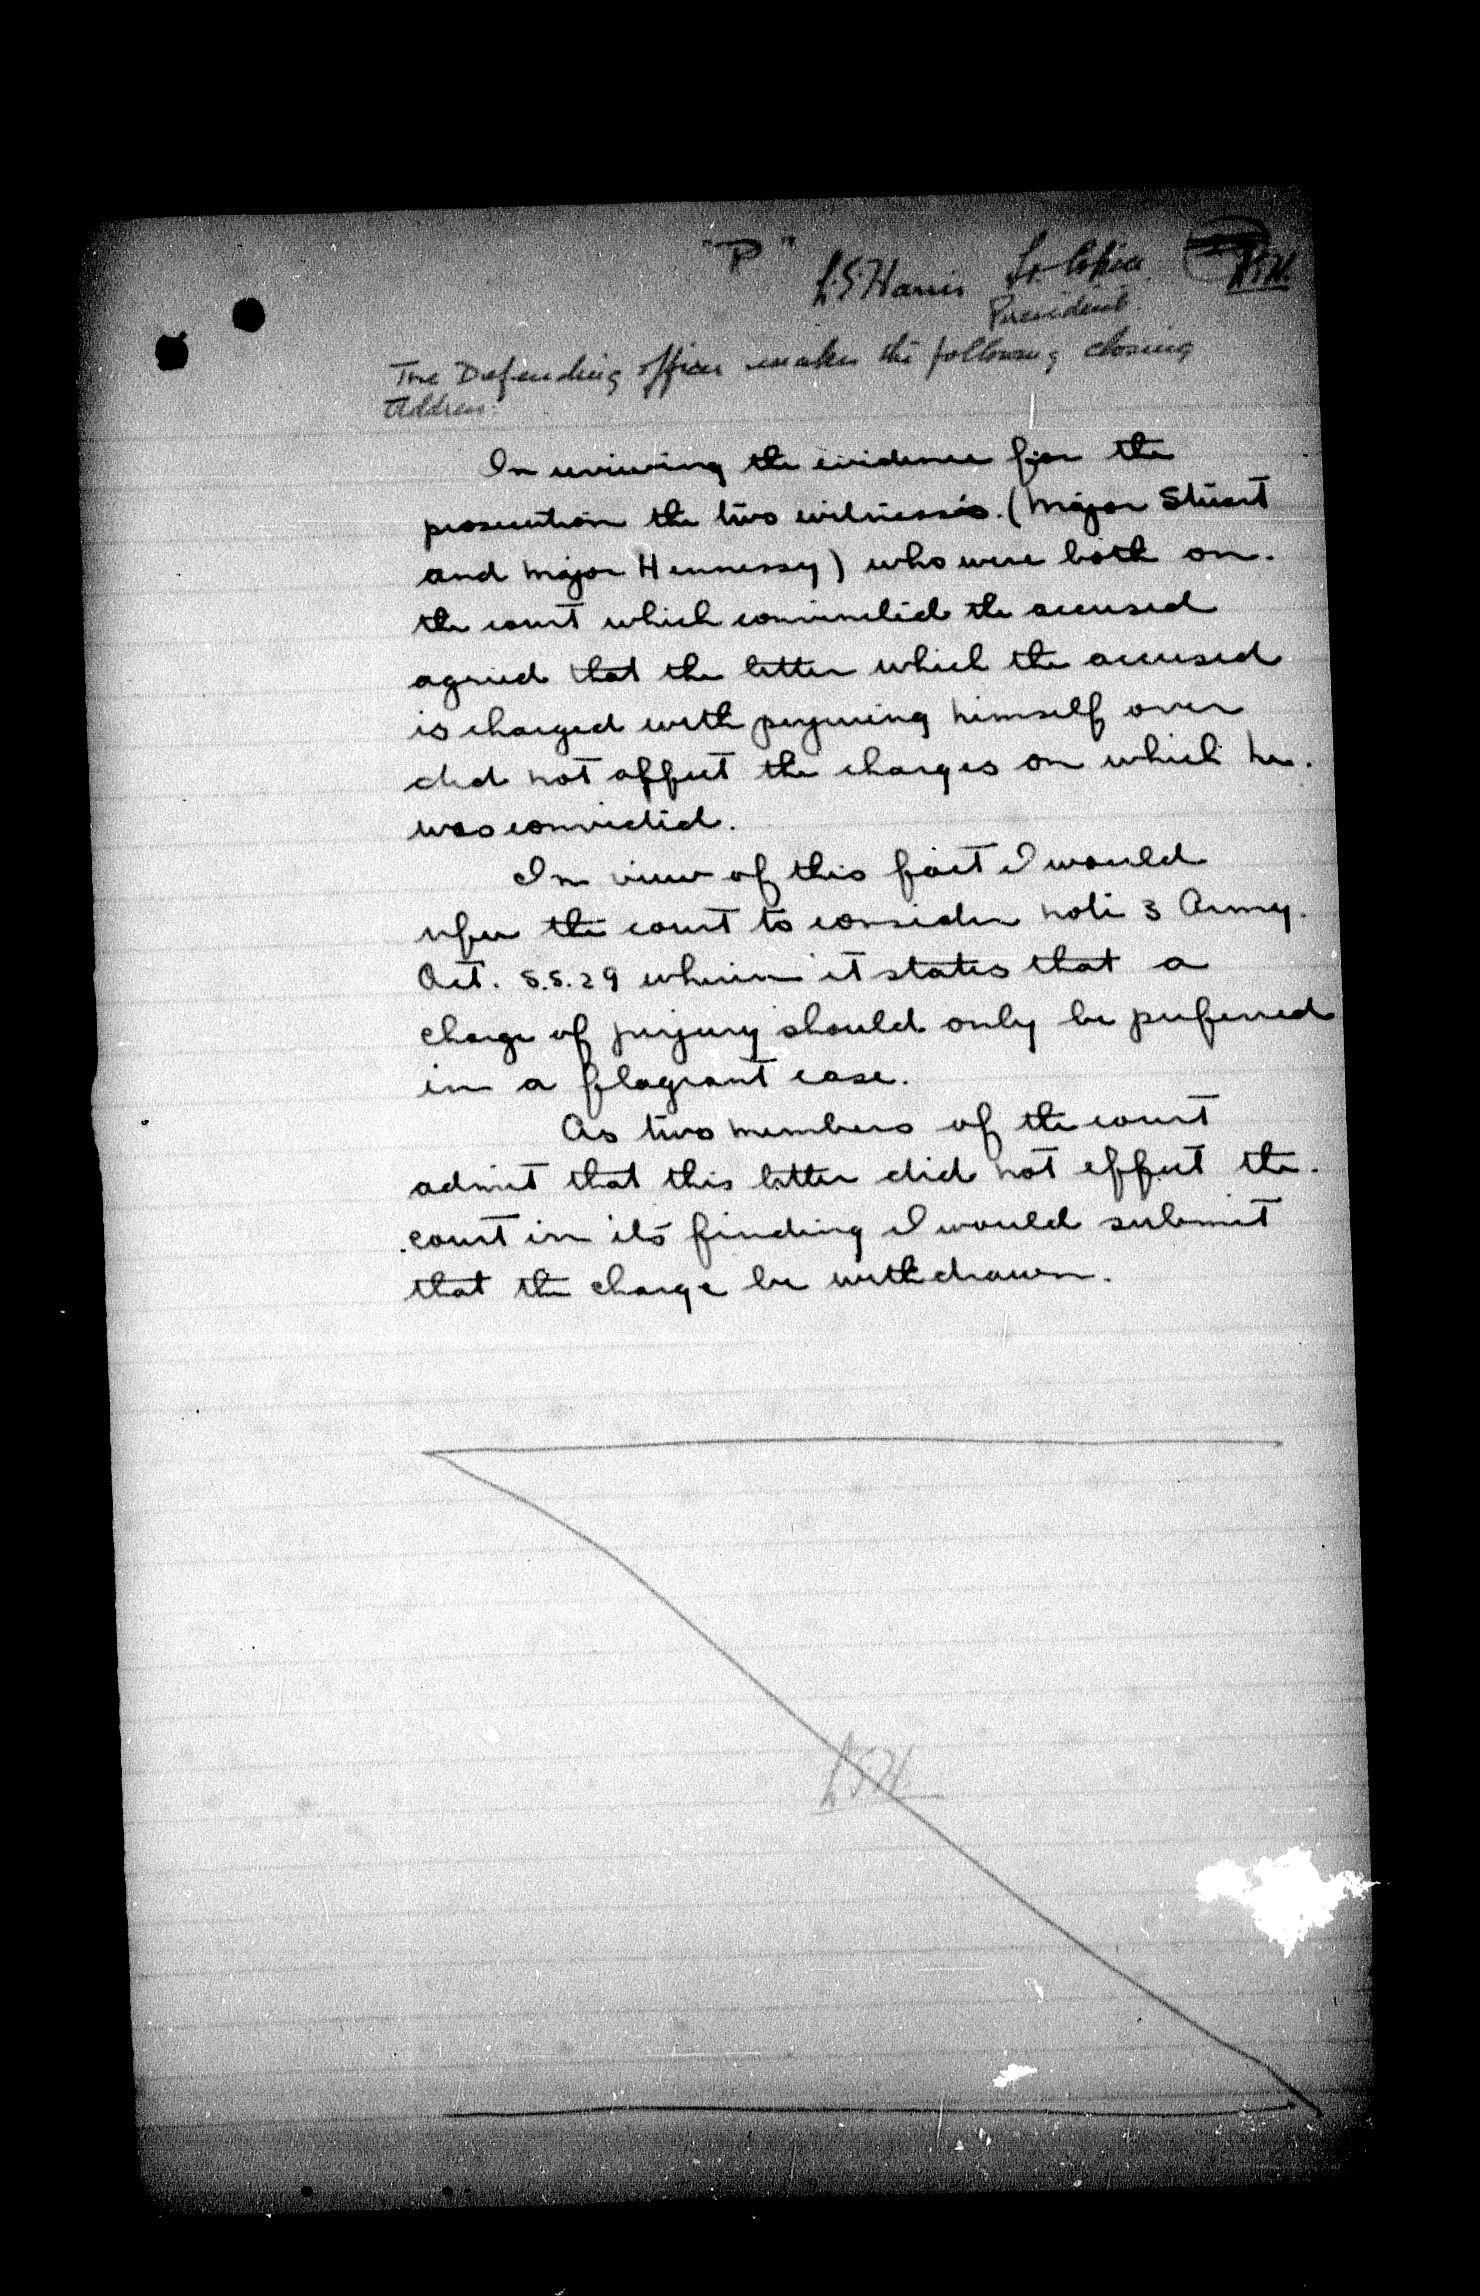 "P"
L.S. Harris Lt. Col.
President.
The Defending officer makes the following closing
address:
In reviewing the evidence for the
prosecution the two witnesses. (Major Stuart
and Major Hennessy) who were both on.
the court which convincted the accused
agreed that the letter which the accused
is charged with perjuring himself over
did not affect the charges on which he.
was convicted.
In view of this fact I would
refer the court to consider note 3 Army.
Act. S.S. 29 wherein it states that a
charge of perjury should only be preferred
in a flagrant case.
As two members of the court
admit that this letter did not effect the.
court in it's finding I would submit
that the charge be withdrawn.
LSH.